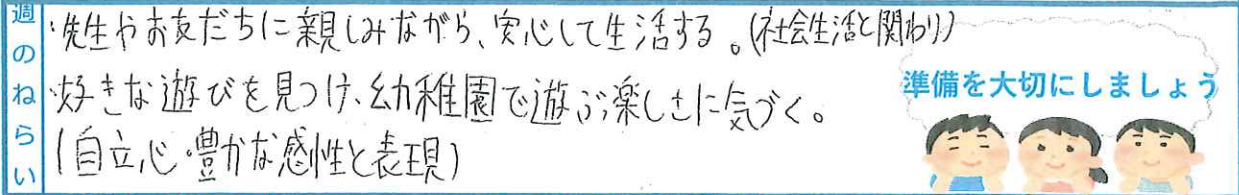 週のねらい
・先生やお友だちに親しみながら、安心して生活する。(社会生活と関わり)
・好きな遊びを見つけ、幼稚園で遊ぶ楽しさに気づく。
(自立心・豊かな感性と表現)
準備を大切にしましょう